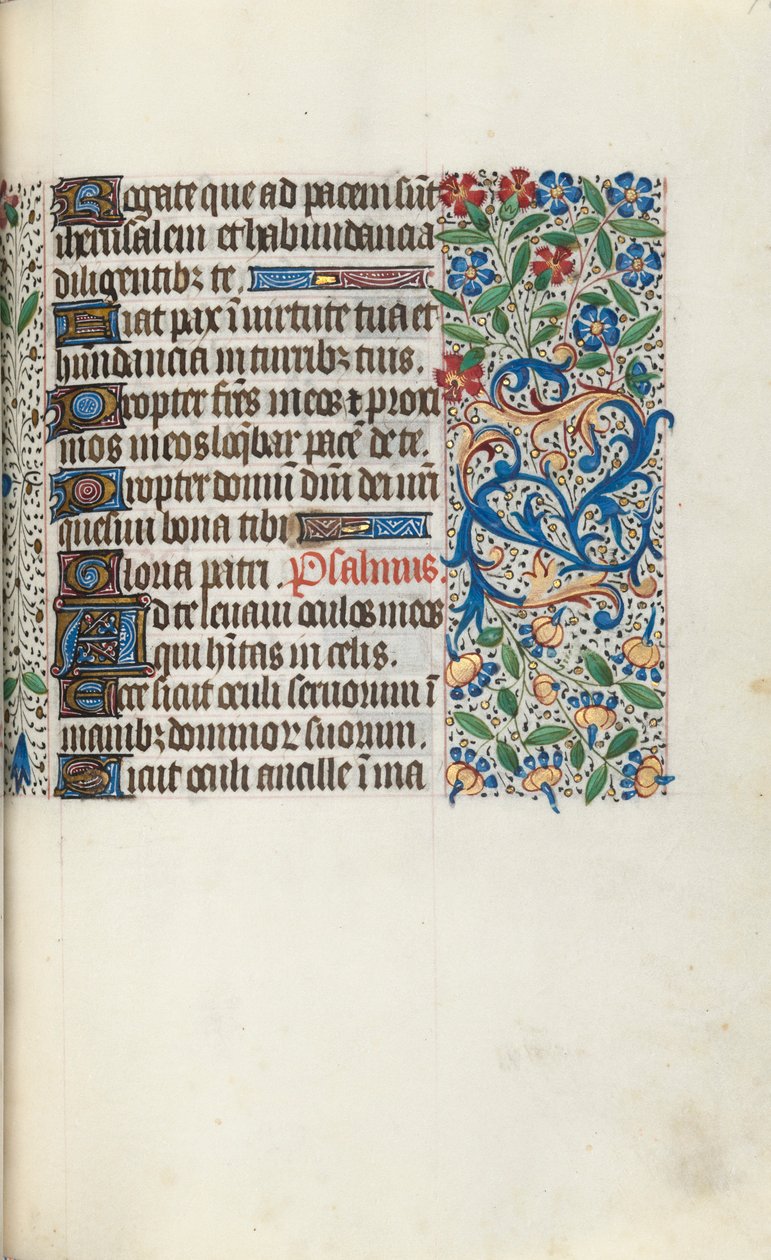 Rogate que ad pacem sūt
iherusalem et habundancia
diligentibꝫ te.
Fiat pax ī uirtute tua et
hūndancia in turribꝫ tuis.
Propter fr̄es meos ⁊ proxi
mos meos loq̄bar pacē de te.
Propter domū dn̄i dei nr̄i
quesiui bona tibi
Gloria patri. Psalmus.
Ad te leuaui oculos meos
qui hītas in celis.
Ecce sicut oculi seruorum ī
manibꝫ dominoꝛ suorum.
Sicut oculi ancille ī ma